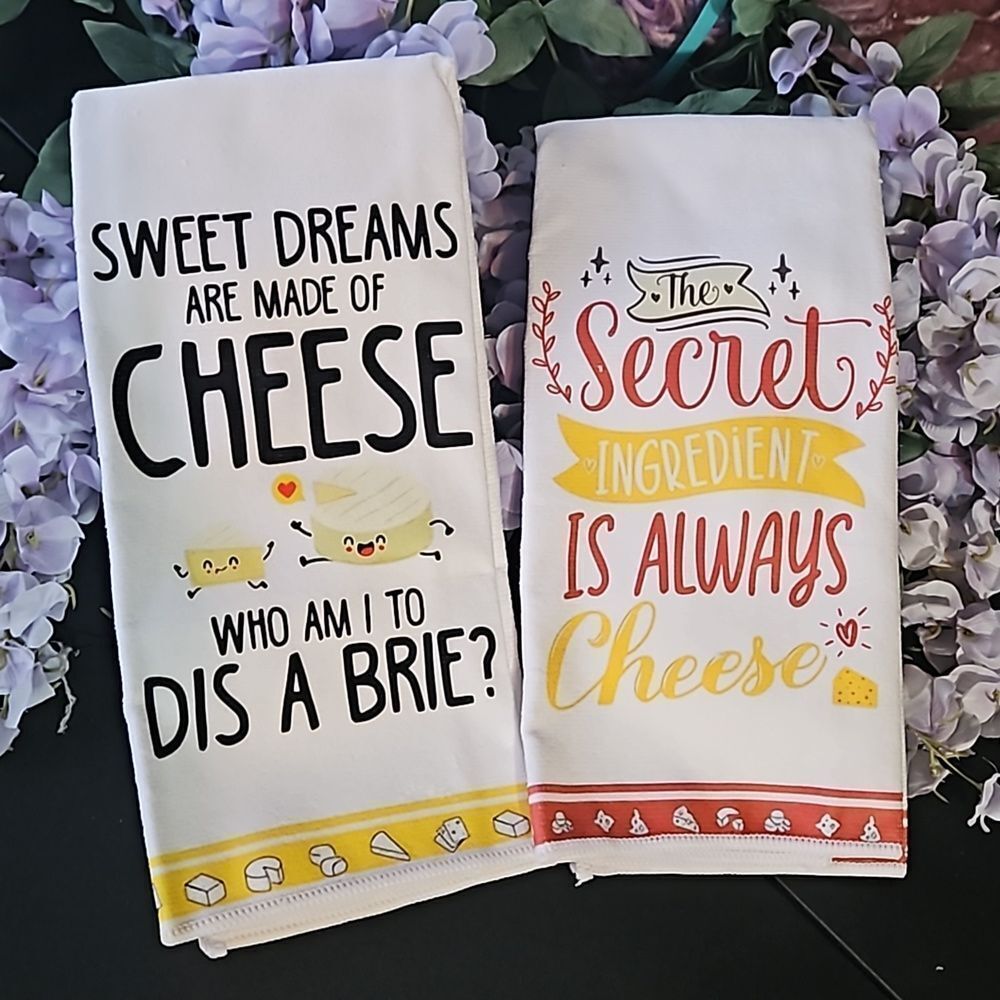 SWEET DREAMS
ARE MADE OF
CHEESE
WHO AM I TO
DIS A BRIE?
The
Secret
INGREDiENT
IS ALWAYS
Cheese